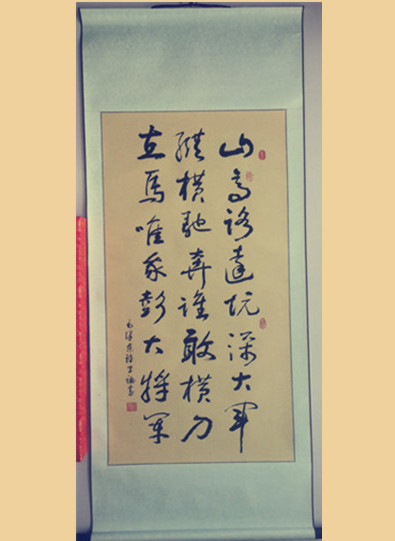 山高路遠坑深大軍
縱横馳奔誰敢横刀
立馬唯我彭大將軍
毛澤東詩